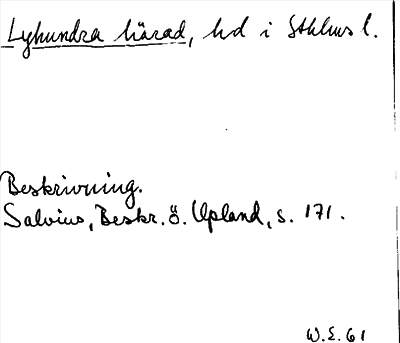 Lyhundra härad, hd i Sthlms l.
Beskrivning.
Salvius, Beskr. ö. Upland, s. 171.
W.E. 61